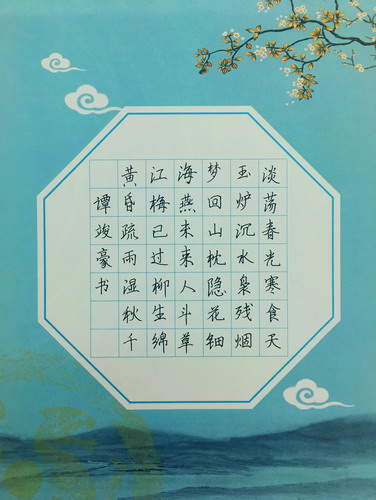 淡荡春光寒食天
玉炉沉水袅残烟
梦回山枕隐花钿
海燕未来人斗草
江梅已过柳生绵
黄昏疏雨湿秋千
谭竣豪书